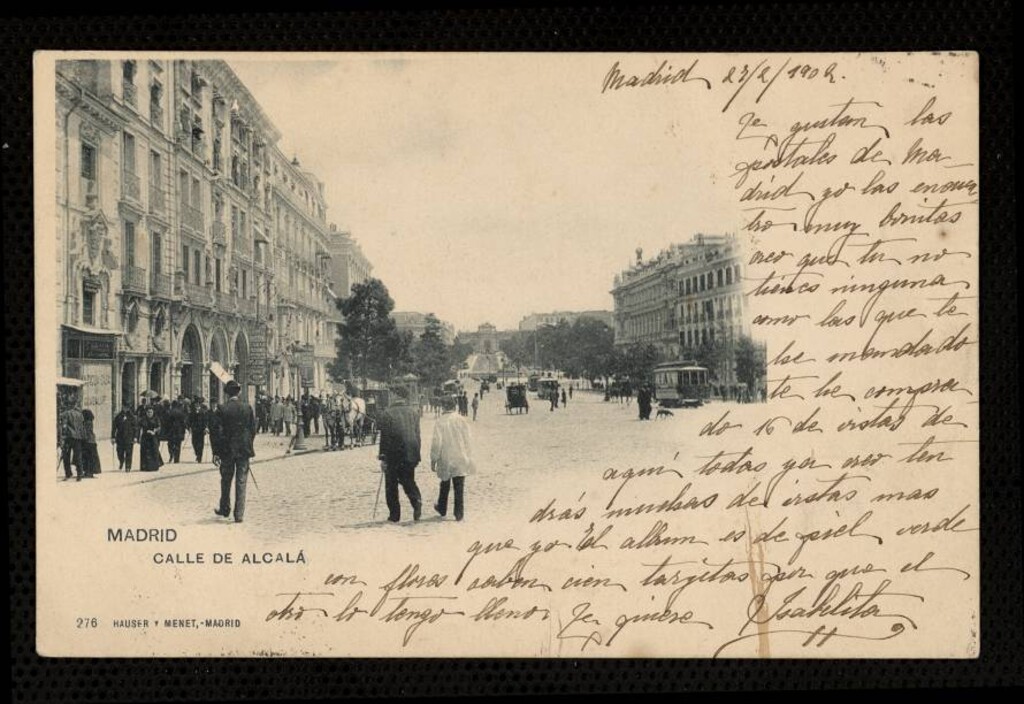 Madrid 23/2/1902.
Te gustan las
postales de Ma-
drid yo las encuen
tro muy bonitas
creo que tu no
tienes ninguna
como las que te
he mandado
te he compra
do 16 de vistas de
aqui todas ya creo ten
drás muchas de vistas mas
que yo El album es de piel verde
con flores caben cien tarjetas por que el
otro lo tengo lleno Te quiere Isabelita
MADRID
CALLE DE ALCALÁ
276 HAUSER Y MENET,-MADRID